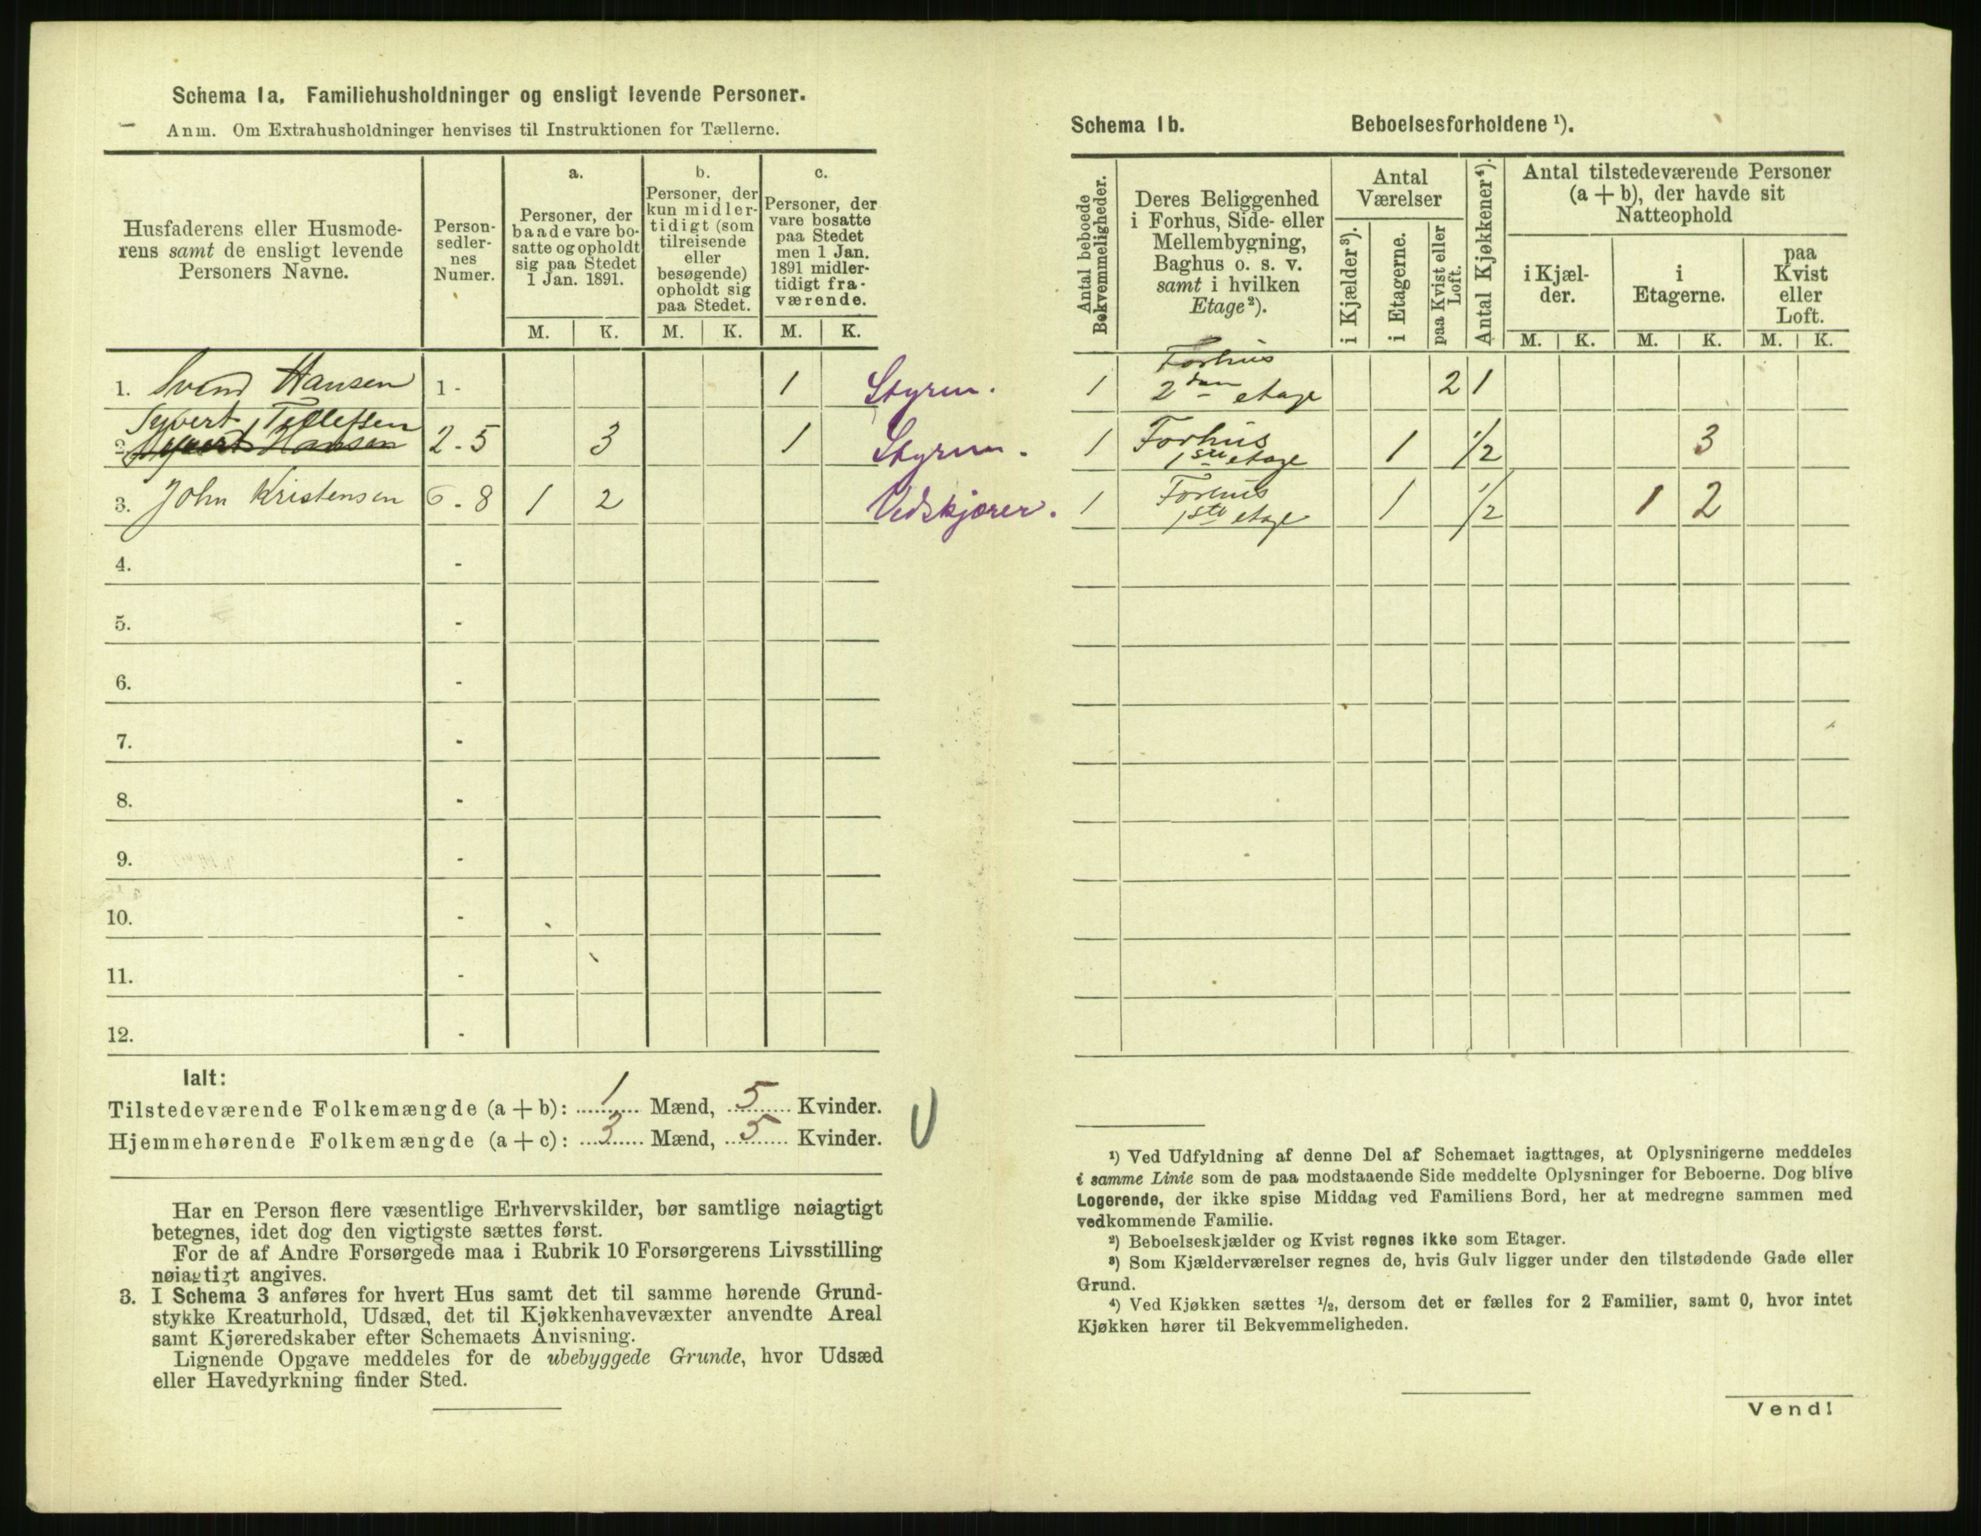 Schema 1a. Familiehusholdninger og ensligt levende Personer.
Anm. Om Extrahusholdninger henvises til Instruktionen for Tællerne.
Husfaderens eller Husmode-
rens samt de ensligt levende
Personers Navne.
Person-
sedler-
nes
Numer.
a.
Personer, der
baade vare bo-
satte og opholdt
sig paa Stedet
1 Jan. 1891.
b.
Personer, der
kun midler-
tidigt (som
tilreisende
eller
besøgende)
opholdt sig
paa Stedet.
c.
Personer, der
vare bosatte
paa Stedet
men 1 Jan.
1891 midler-
tidigt fra-
værende.
M. K. M. K. M. K.
1. Svend Hansen 1 - 1 Styrm.
Syvert Tellefsen
2. Syvert Hansen 2 - 5 3 1 Styrm.
3. John Kristensen 6 - 8 1 2 Vedskjærer.
4. -
5. -
6. -
7. -
8. -
9. -
10. -
11. -
12. -
Ialt:
Tilstedeværende Folkemængde (a + b): 1 Mænd, 5 Kvinder.
Hjemmehørende Folkemængde (a + c): 3 Mænd, 5 Kvinder.
Har en Person flere væsentlige Erhvervskilder, bør samtlige nøiagtigt
betegnes, idet dog den vigtigste sættes først.
For de af Andre Forsørgede maa i Rubrik 10 Forsørgerens Livsstilling
nøiagtigt angives.
3. I Schema 3 anføres for hvert Hus samt det til samme hørende Grund-
stykke Kreaturhold, Udsæd, det til Kjøkkenhavevæxter anvendte Areal
samt Kjøreredskaber efter Schemaets Anvisning.
Lignende Opgave meddeles for de ubebyggede Grunde, hvor Udsæd
eller Havedyrkning finder Sted.
Schema 1b. Beboelsesforholdene ¹).
Antal beboede
Bekvemmeligheder.
Deres Beliggenhed
i Forhus, Side- eller
Mellembygning,
Baghus o. s. v.
samt i hvilken
Etage²).
Antal
Værelser
i Kjælder³).
i Etagerne.
paa Kvist eller
Loft.
Antal Kjøkkener⁴).
Antal tilstedeværende Personer
(a + b), der havde sit
Natteophold
i Kjæl-
der.
i
Etagerne.
paa
Kvist
eller
Loft.
M. K. M. K. M. K.
Forhus
1 2den etage 2 1
1 Forhus 1 ½ 3
1ste etage
1 Forhus 1 ½ 1 2
1ste etage
¹) Ved Udfyldning af denne Del af Schemaet iagttages, at Oplysningerne meddeles
i samme Linie som de paa modstaaende Side meddelte Oplysninger for Beboerne. Dog blive
Logerende, der ikke spise Middag ved Familiens Bord, her at medregne sammen med
vedkommende Familie.
²) Beboelseskjælder og Kvist regnes ikke som Etager.
³) Som Kjælderværelser regnes de, hvis Gulv ligger under den tilstødende Gade eller
Grund.
⁴) Ved Kjøkken sættes ½, dersom det er fælles for 2 Familier, samt 0, hvor intet
Kjøkken hører til Bekvemmeligheden.
Vend!